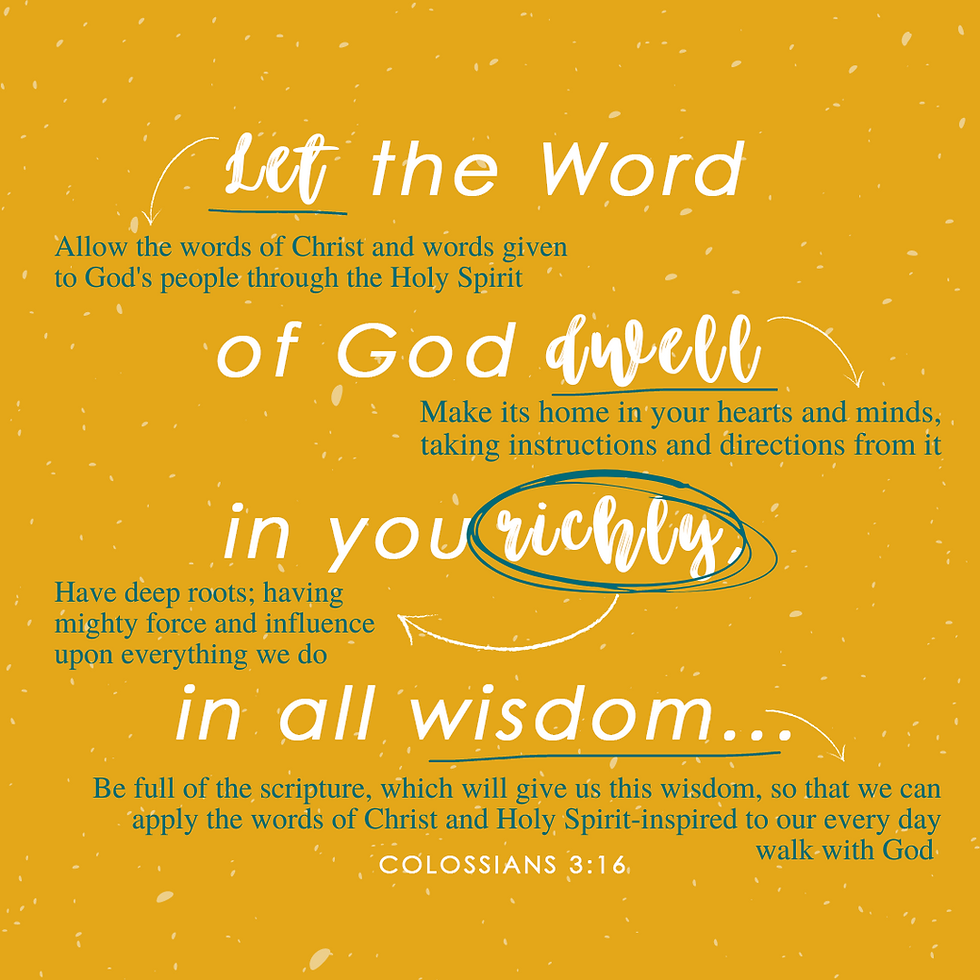 Let the Word
Allow the words of Christ and words given
to God's people through the Holy Spirit
of God dwell
Make its home in your hearts and minds,
taking instructions and directions from it
in you richly,
Have deep roots; having
mighty force and influence
upon everything we do
in all wisdom...
Be full of the scripture, which will give us this wisdom, so that we can
apply the words of Christ and Holy Spirit-inspired to our every day
walk with God
COLOSSIANS 3:16